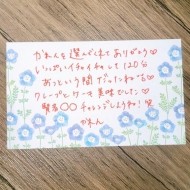 かれんを選んでくれてありがとう♡
いっぱいイチャイチャして120分
あっという間だったね
クレープとケーキ美味でした♡
○○チャレンジしようね!
かれん